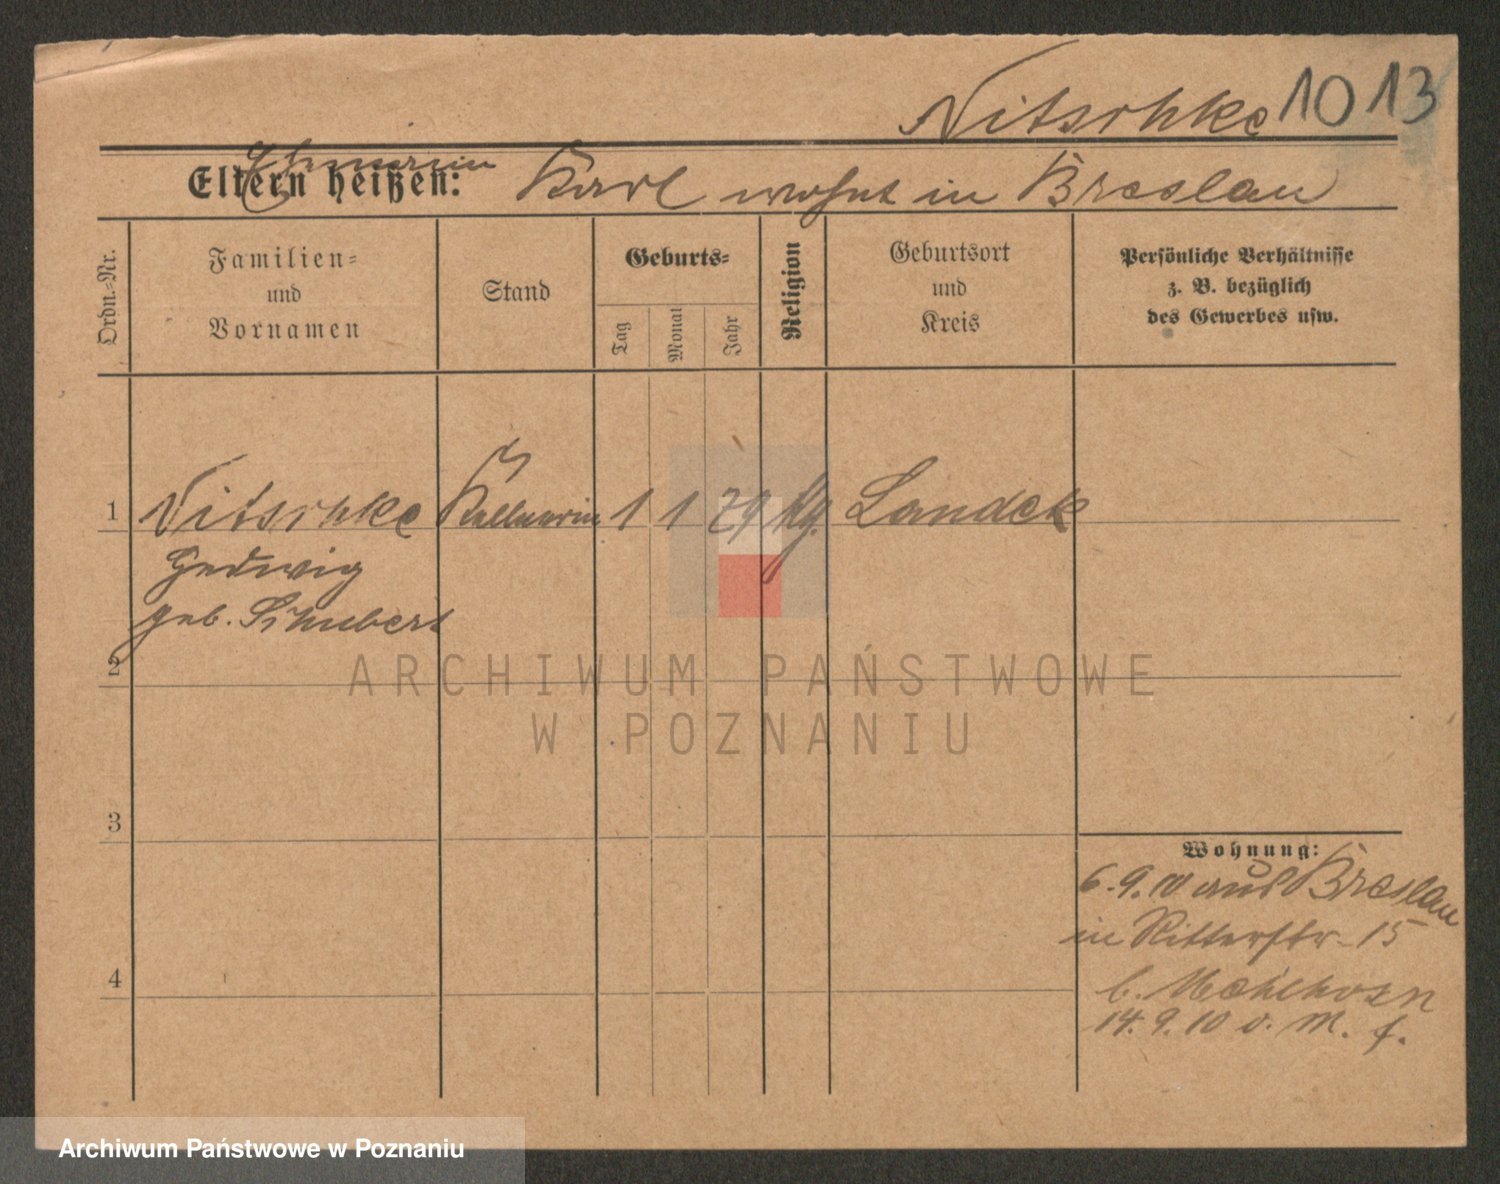 Nitschke 10 13
Eltern heißen: Ehemann Karl wohnt in Breslau
Ordn.-Nr.
Familien-
und
Vornamen
Stand
Geburts-
Tag
Monat
Jahr
Religion
Geburtsort
und
Kreis
Persönliche Verhältnisse
z. B. bezüglich
des Gewerbes usw.
1 Nitschke Kellnerin 1 1 79 kg. Landek
Hedwig
geb. Schubert
2
ARCHIWUM PAŃSTWOWE
W POZNANIU
3
Wohnung:
6.9.10 aus Breslau
in Ritterstr. 15
4
b. Mehlhorn
14.9.10 o. M. f.
Archiwum Państwowe w Poznaniu